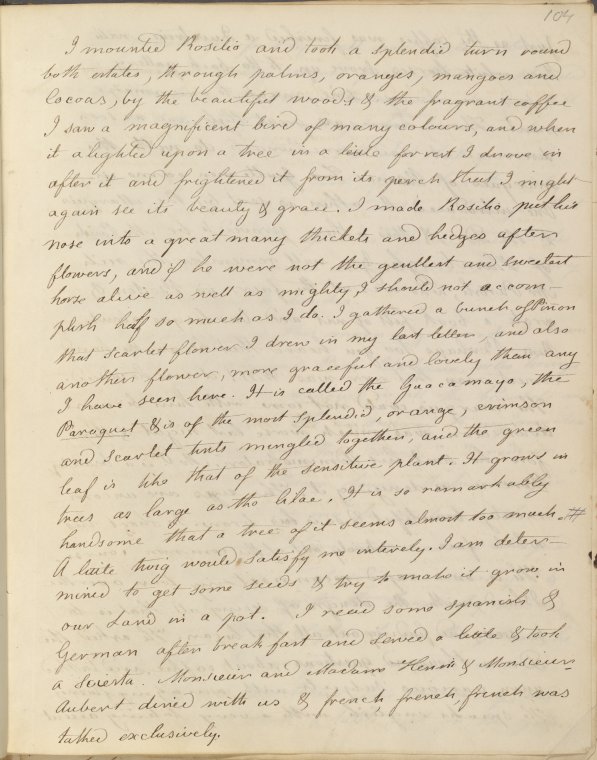 104
I mounted Rosilio and took a splendid turn round
both estates, through palms, oranges, mangoes and
Cocoas, by the beautiful woods & the fragrant coffee
I saw a magnificent bird of many colours, and when
it alighted upon a tree in a little forrest I drove in
after it and frightened it from its perch that I might
again see its beauty & grace. I made Rosilio put his
nose into a great many thickets and hedges after
flowers, and if he were not the gentlest and sweetest
horse alive as well as mighty, I should not accom-
plish half so much as I do. I gathered a bunch of Piñon
that scarlet flower I drew in my last letter, and also
another flower, more graceful and lovely than any
I have seen here. It is called the Guacamayo, the
Paroquet & is of the most splendid, orange, crimson
and scarlet tints mingled together, and the green
leaf is like that of the sensitive plant. It grows in
trees as large as the lilac. It is so remarkably
handsome that a tree of it seems almost too much. #
A little twig would satisfy me intirely. I am deter-
mined to get some seeds & try to make it grow in
our Land in a pot. I read some spanish &
German after breakfast and sewed a little & took
a siesta. Monsieur and Madame & Monsieur
Aubert dined with us & french, french, french was
talked exclusively.